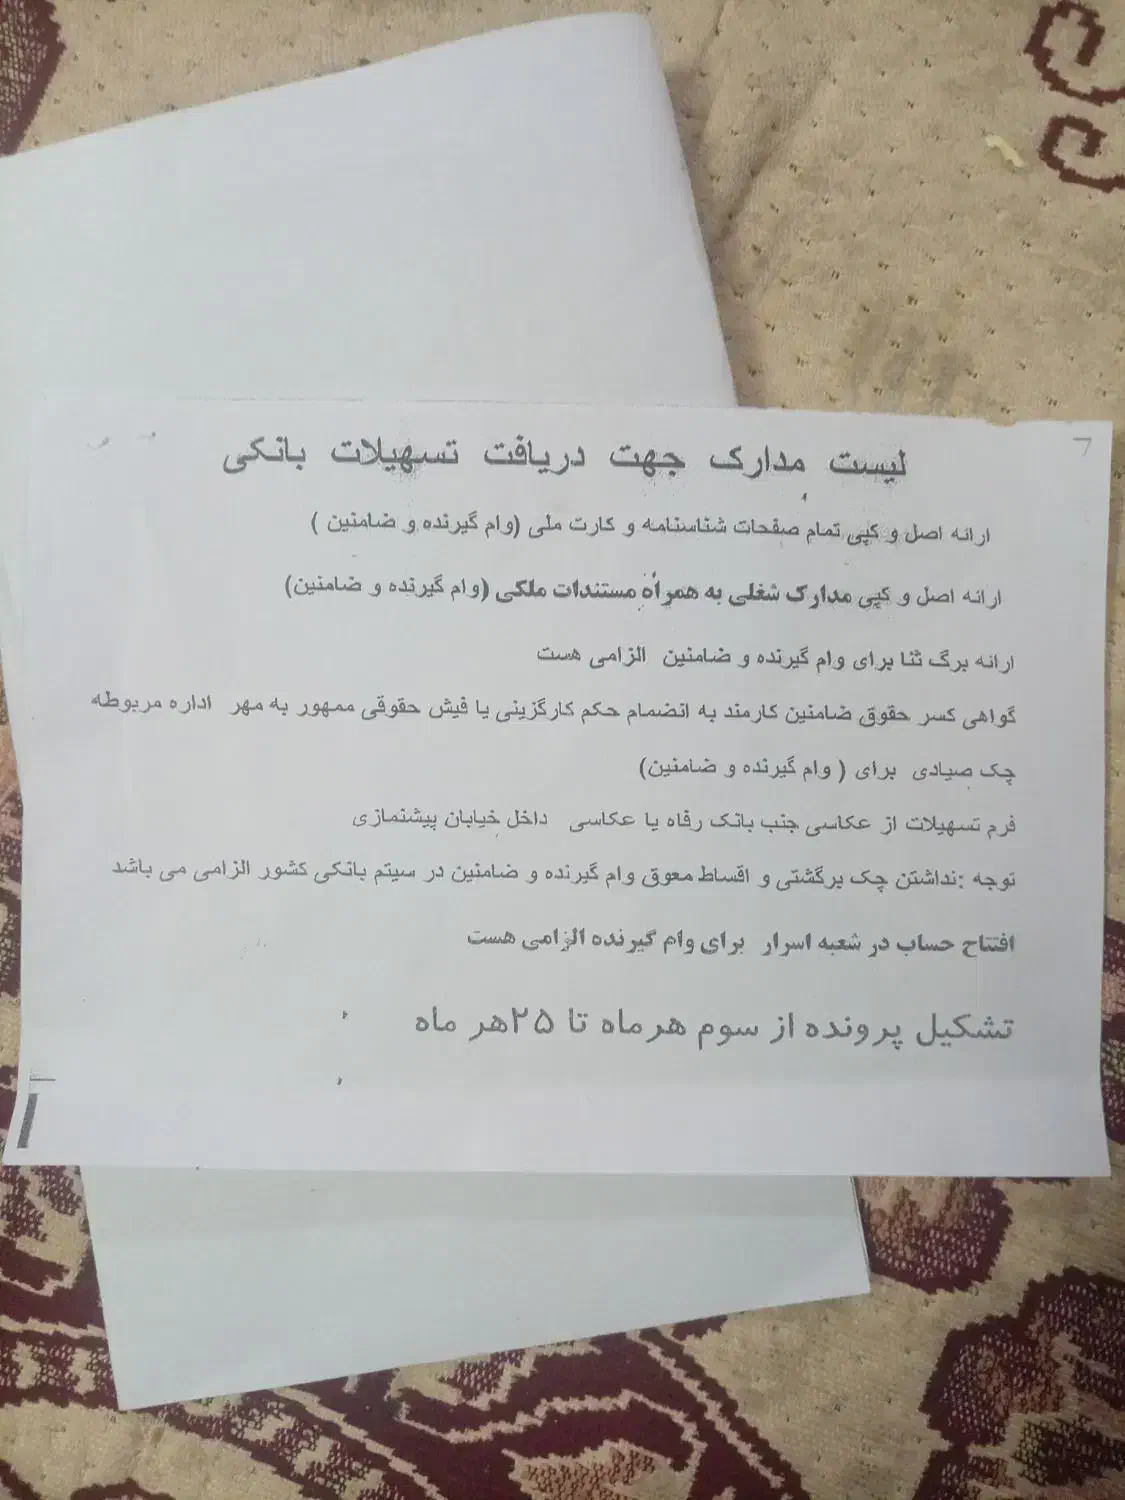 لیست مدارک جهت دریافت تسهیلات بانکی
ارائه اصل و کپی تمام صفحات شناسنامه و کارت ملی (وام گیرنده و ضامنین )
ارائه اصل و کپی مدارک شغلی به همراه مستندات ملکی (وام گیرنده و ضامنین)
ارائه برگ ثنا برای وام گیرنده و ضامنین الزامی هست
گواهی کسر حقوق ضامنین کارمند به انضمام حکم کارگزینی یا فیش حقوقی ممهور به مهر اداره مربوطه
چک صیادی برای ( وام گیرنده و ضامنین)
فرم تسهیلات از عکاسی جنب بانک رفاه یا عکاسی داخل خیابان پیشنمازی
توجه :نداشتن چک برگشتی و اقساط معوق وام گیرنده و ضامنین در سیتم بانکی کشور الزامی می باشد
افتتاح حساب در شعبه اسرار برای وام گیرنده الزامی هست
تشکیل پرونده از سوم هرماه تا ۲۵هر ماه